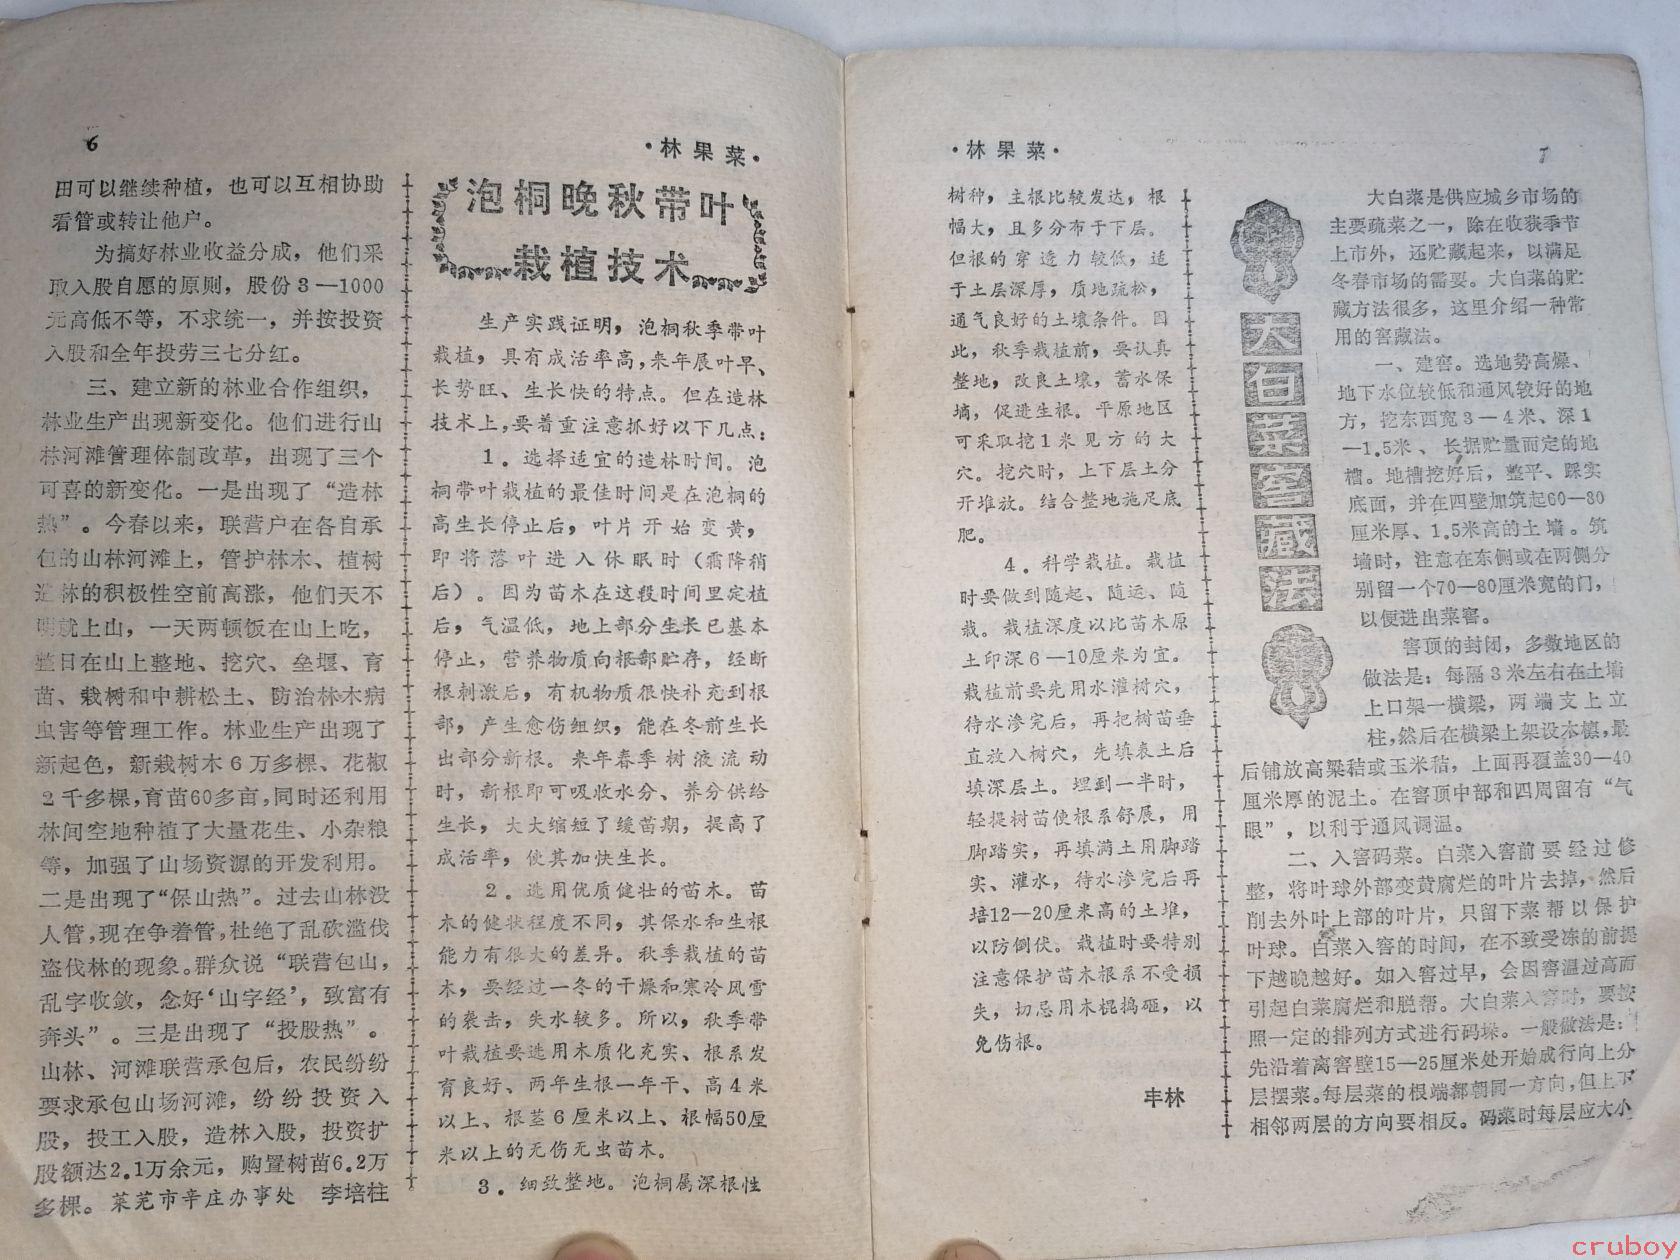 6
·林果菜·
田可以继续种植，也可以互相协助
看管或转让他户。
为搞好林业收益分成，他们采
取入股自愿的原则，股份3—1000
元高低不等，不求统一，并按投资
入股和全年投劳三七分红。
三、建立新的林业合作组织，
林业生产出现新变化。他们进行山
林河滩管理体制改革，出现了三个
可喜的新变化。一是出现了“造林
热”。今春以来，联营户在各自承
包的山林河滩上，管护林木、植树
造林的积极性空前高涨，他们天不
明就上山，一天两顿饭在山上吃，
整日在山上整地、挖穴、垒堰、育
苗、栽树和中耕松土、防治林木病
虫害等管理工作。林业生产出现了
新起色，新栽树木6万多棵、花椒
2千多棵，育苗60多亩，同时还利用
林间空地种植了大量花生、小杂粮
等，加强了山场资源的开发利用。
二是出现了“保山热”。过去山林没
人管，现在争着管，杜绝了乱砍滥伐
盗伐林的现象。群众说“联营包山，
乱字收敛，念好‘山字经’，致富有
奔头”。三是出现了“投股热”。
山林、河滩联营承包后，农民纷纷
要求承包山场河滩，纷纷投资入
股，投工入股，造林入股，投资扩
股额达2.1万余元，购置树苗6.2万
多棵。莱芜市辛庄办事处　李培柱
泡桐晚秋带叶
栽植技术
生产实践证明，泡桐秋季带叶
栽植，具有成活率高，来年展叶早、
长势旺、生长快的特点。但在造林
技术上，要着重注意抓好以下几点：
1．选择适宜的造林时间。泡
桐带叶栽植的最佳时间是在泡桐的
高生长停止后，叶片开始变黄，
即将落叶进入休眠时（霜降稍
后）。因为苗木在这段时间里定植
后，气温低，地上部分生长已基本
停止，营养物质向根部贮存，经断
根刺激后，有机物质很快补充到根
部，产生愈伤组织，能在冬前生长
出部分新根。来年春季树液流动
时，新根即可吸收水分、养分供给
生长，大大缩短了缓苗期，提高了
成活率，使其加快生长。
2．选用优质健壮的苗木。苗
木的健状程度不同，其保水和生根
能力有很大的差异。秋季栽植的苗
木，要经过一冬的干燥和寒冷风雪
的袭击，失水较多。所以，秋季带
叶栽植要选用木质化充实、根系发
育良好、两年生根一年干、高4米
以上、根茎6厘米以上、根幅50厘
米以上的无伤无虫苗木。
3．细致整地。泡桐属深根性
·林果菜·
7
树种，主根比较发达，根
幅大，且多分布于下层。
但根的穿透力较低，适
于土层深厚，质地疏松，
通气良好的土壤条件。因
此，秋季栽植前，要认真
整地，改良土壤，蓄水保
墒，促进生根。平原地区
可采取挖1米见方的大
穴。挖穴时，上下层土分
开堆放。结合整地施足底
肥。
4．科学栽植。栽植
时要做到随起、随运、随
栽。栽植深度以比苗木原
土印深6—10厘米为宜。
栽植前要先用水灌树穴，
待水渗完后，再把树苗垂
直放入树穴，先填表土后
填深层土。埋到一半时，
轻提树苗使根系舒展，用
脚踏实，再填满土用脚踏
实、灌水，待水渗完后再
培12—20厘米高的土堆，
以防倒伏。栽植时要特别
注意保护苗木根系不受损
失，切忌用木棍捣砸，以
免伤根。
丰林
大白菜窖藏法
大白菜是供应城乡市场的
主要疏菜之一，除在收获季节
上市外，还贮藏起来，以满足
冬春市场的需要。大白菜的贮
藏方法很多，这里介绍一种常
用的窖藏法。
一、建窖。选地势高燥、
地下水位较低和通风较好的地
方，挖东西宽3—4米、深1
—1.5米、长据贮量而定的地
槽。地槽挖好后，整平、踩实
底面，并在四壁加筑起60—80
厘米厚、1.5米高的土墙。筑
墙时，注意在东侧或在两侧分
别留一个70—80厘米宽的门，
以便进出菜窖。
窖顶的封闭，多数地区的
做法是：每隔3米左右在土墙
上口架一横梁，两端支上立
柱，然后在横梁上架设木檩，最
后铺放高梁秸或玉米秸，上面再覆盖30—40
厘米厚的泥土。在窖顶中部和四周留有“气
眼”，以利于通风调温。
二、入窖码菜。白菜入窖前要经过修
整，将叶球外部变黄腐烂的叶片去掉，然后
削去外叶上部的叶片，只留下菜帮以保护
叶球。白菜入窖的时间，在不致受冻的前提
下越晚越好。如入窖过早，会因窖温过高而
引起白菜腐烂和脱帮。大白菜入窖时，要按
照一定的排列方式进行码垛。一般做法是：
先沿着离窖壁15—25厘米处开始成行向上分
层摆菜。每层菜的根端都朝同一方向，但上下
相邻两层的方向要相反。码菜时每层应大小
cruboy